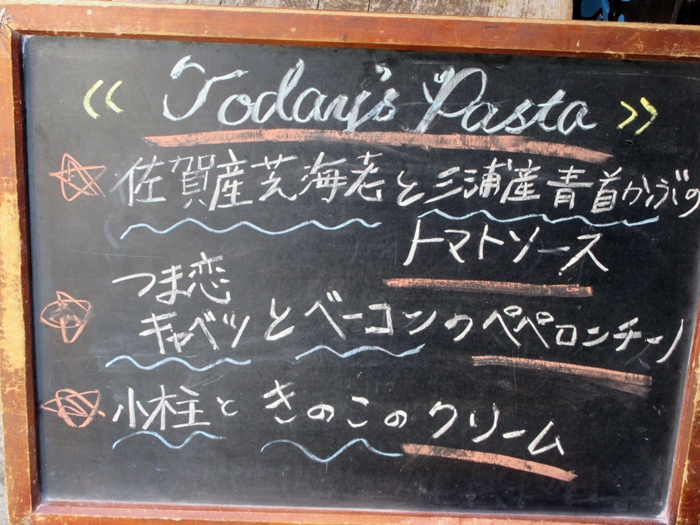 《 Today's Pasta 》
佐賀産芝海老と三浦産青首かぶの
トマトソース
つま恋
キャベツとベーコンのペペロンチーノ
小柱ときのこのクリーム